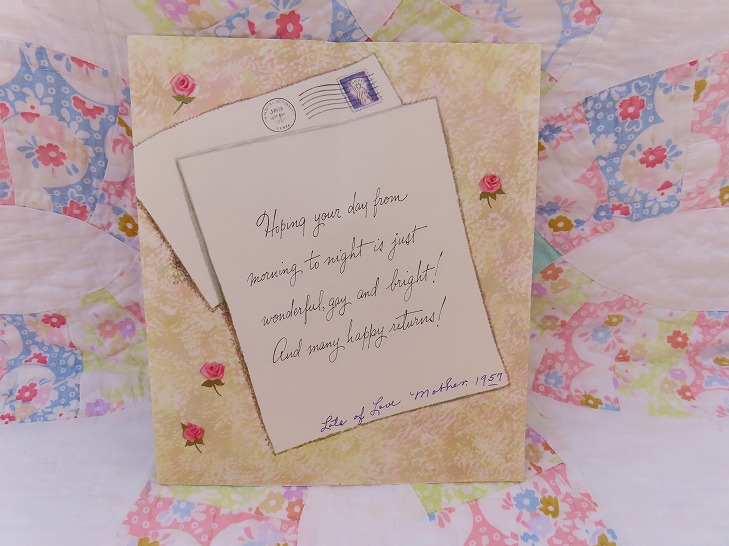 Hoping your day from
morning to night is just
wonderful, gay and bright!
And many happy returns!
Lots of Love Mother. 1957